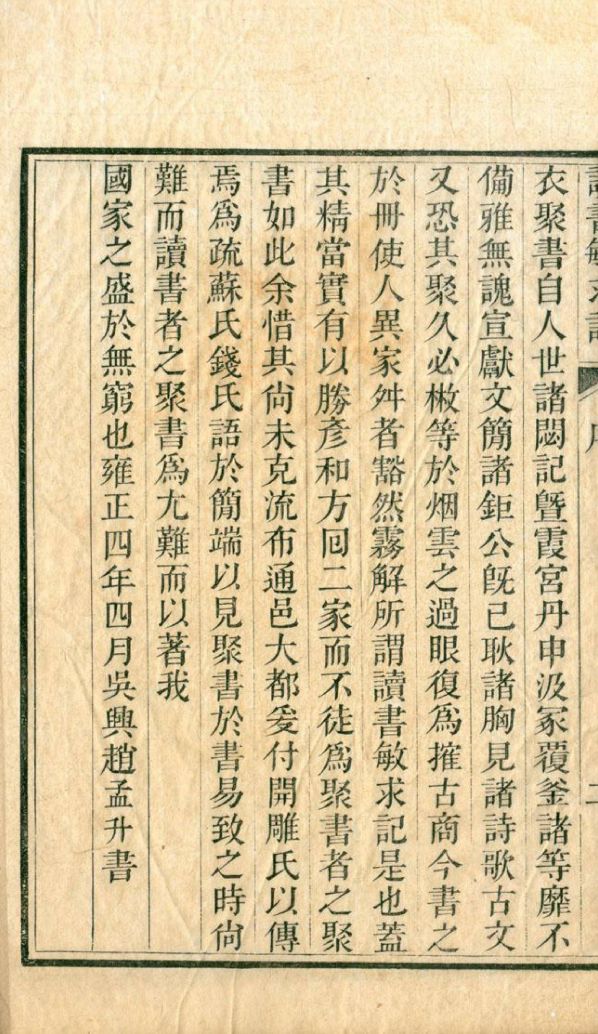 讀書敏求記 序 二
衣聚書自人世諸閟記曁霞宮丹申汲冢覆釜諸等靡不
備雅無謝宣獻文簡諸鉅公旣已耿諸胸見諸詩歌古文
又恐其聚久必㪚等於烟雲之過眼復爲搉古商今書之
於冊使人異家舛者豁然霧解所謂讀書敏求記是也蓋
其精當實有以勝彥和方回二家而不徒爲聚書者之聚
書如此余惜其尙未克流布通邑大都爰付開雕氏以傳
焉爲疏蘇氏錢氏語於簡端以見聚書於書易致之時尙
難而讀書者之聚書爲尢難而以著我
國家之盛於無窮也雍正四年四月吳興趙孟升書